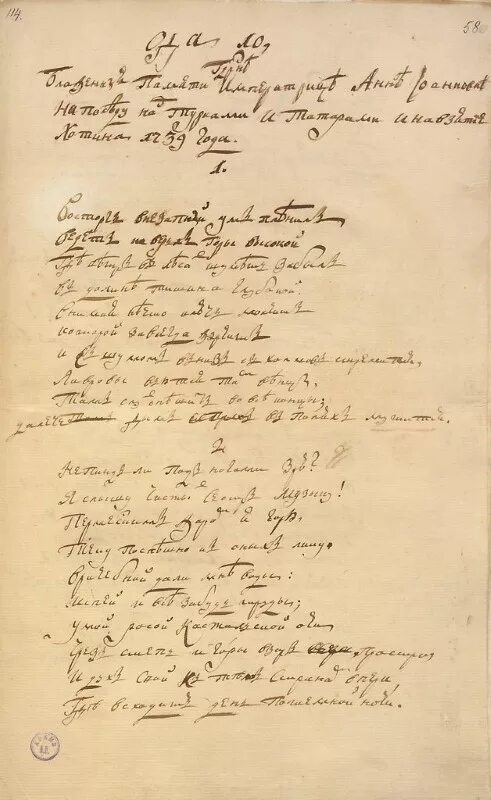 114.
58
Ода 10,
Блаженныя Памяти Гдрнѣ Императрицѣ Аннѣ Іоанновнѣ
На побѣду надъ Турками и Татарами и на взятіе
Хотина 1739 Года.
1.
Восторгъ внезапный умъ плѣнилъ
Ведетъ на верьхъ Горы высокой
Гдѣ вѣтръ въ лѣсахъ шумѣть забылъ
Въ долинѣ тишина глубокой.
Внимая нѣчто ключь молчитъ
Которой завсегда журчитъ
И съ шумомъ внизъ съ холмовъ стремится,
Лавровы вьются тамъ вѣнцы,
Тамъ слухъ спѣшитъ во всѣ концы;
далече дымъ въ поляхъ курится.
2
Не Пиндъ ли подъ ногами зрю?
Я слышу чистыхъ сестръ Музыку!
Пермесскимъ жаромъ я горю,
Теку поспѣшно къ оныхъ лику.
Врачебной дали мнѣ воды:
Испей и всѣ забудь труды;
умой росой Кастальской очи
Чрезъ степь и горы взоръ простри
И духъ свой къ тѣмъ странамъ впери,
Гдѣ всходитъ день по темной ночи.